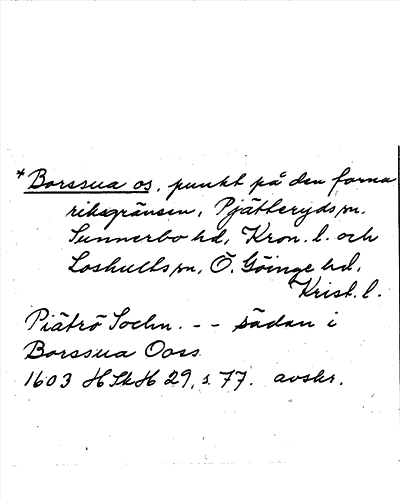 * Borssua os, punkt på den forna
riksgränsen, Pjätteryds sn.
Sunnerbo hd, Kron. l. och
Loshults sn, Ö. Göinge hd,
Krist. l.
Piätrö Sochn. - - sädan i
Borssua Ooss
1603 HSkH 29, s. 77. avskr.